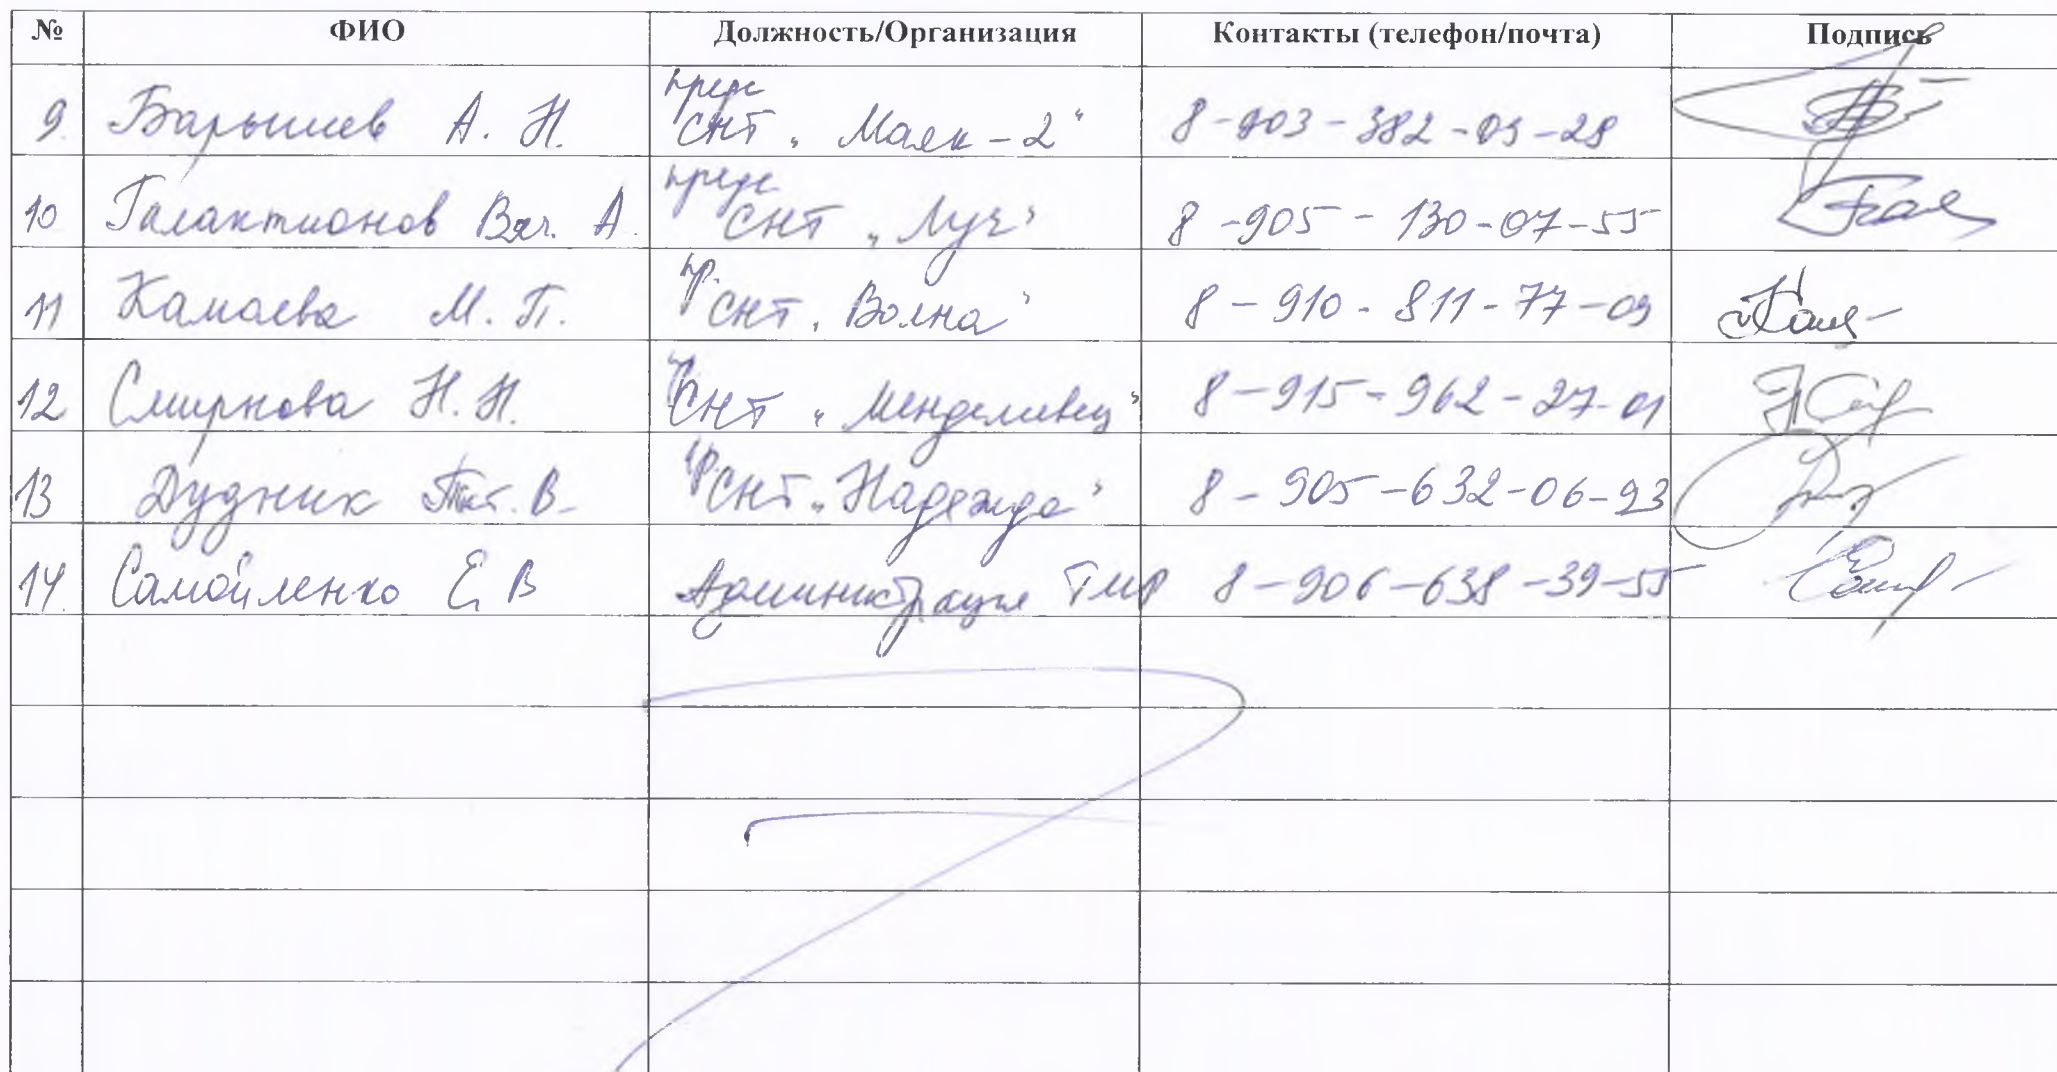 № ФИО Должность/Организация Контакты (телефон/почта) Подпись
9. Барышев А. Н. пред СНТ „Маяк-2" 8-903-382-09-28
10 Галактионов Вяч. А. пред СНТ „Луч" 8-905-130-07-55
11 Камаева М. П. пр. СНТ „Волна" 8-910-811-77-09
12 Смирнова Н. Н. СНТ „Менделеевец" 8-915-962-27-01
13 Дудник В. пр. СНТ „Надежда" 8-905-632-06-93
14. Самойленко Е. В Администрация ТМР 8-906-638-39-55